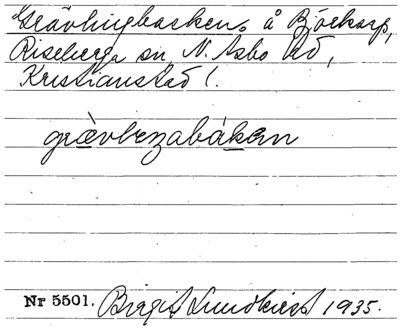 Grävlingbacken, å Björkarp,
Riseberga sn N. Åsbo hd,
Kristianstad l.
grävlezabákan
Nr 5501. Birgit Lundkvist 1935.